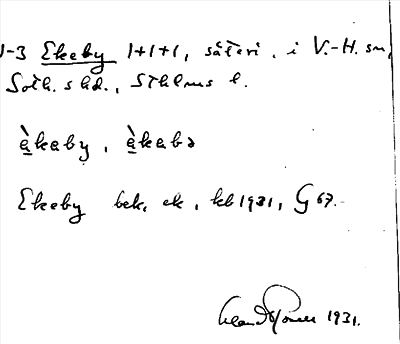 1-3 Ekeby 1+1+1, säteri, i V.-H. sn,
Soth. s hd., Sthlms l.
è̱kaby, è̱kabə
Ekeby bek. ek, kb 1931, G 67.
1931.